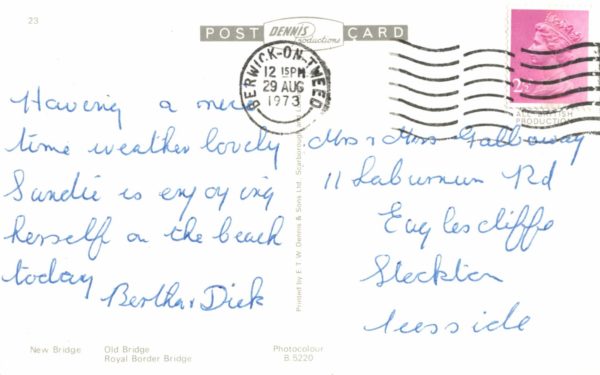 23
POST DENNIS Productions CARD
BERWICK-ON-TWEED
12 15PM
29 AUG
1973
2½
ALL BRITISH
PRODUCTION
Having a nice
time weather lovely
Sandie is enjoying
herself on the beach
today
Bertha & Dick
Mrs & Miss Galloway
11 Laburnum Rd
Eaglescliffe
Stockton
Teesside
Printed by E.T.W. Dennis & Sons Ltd., Scarborough
New Bridge Old Bridge
Royal Border Bridge
Photocolour
B.5220